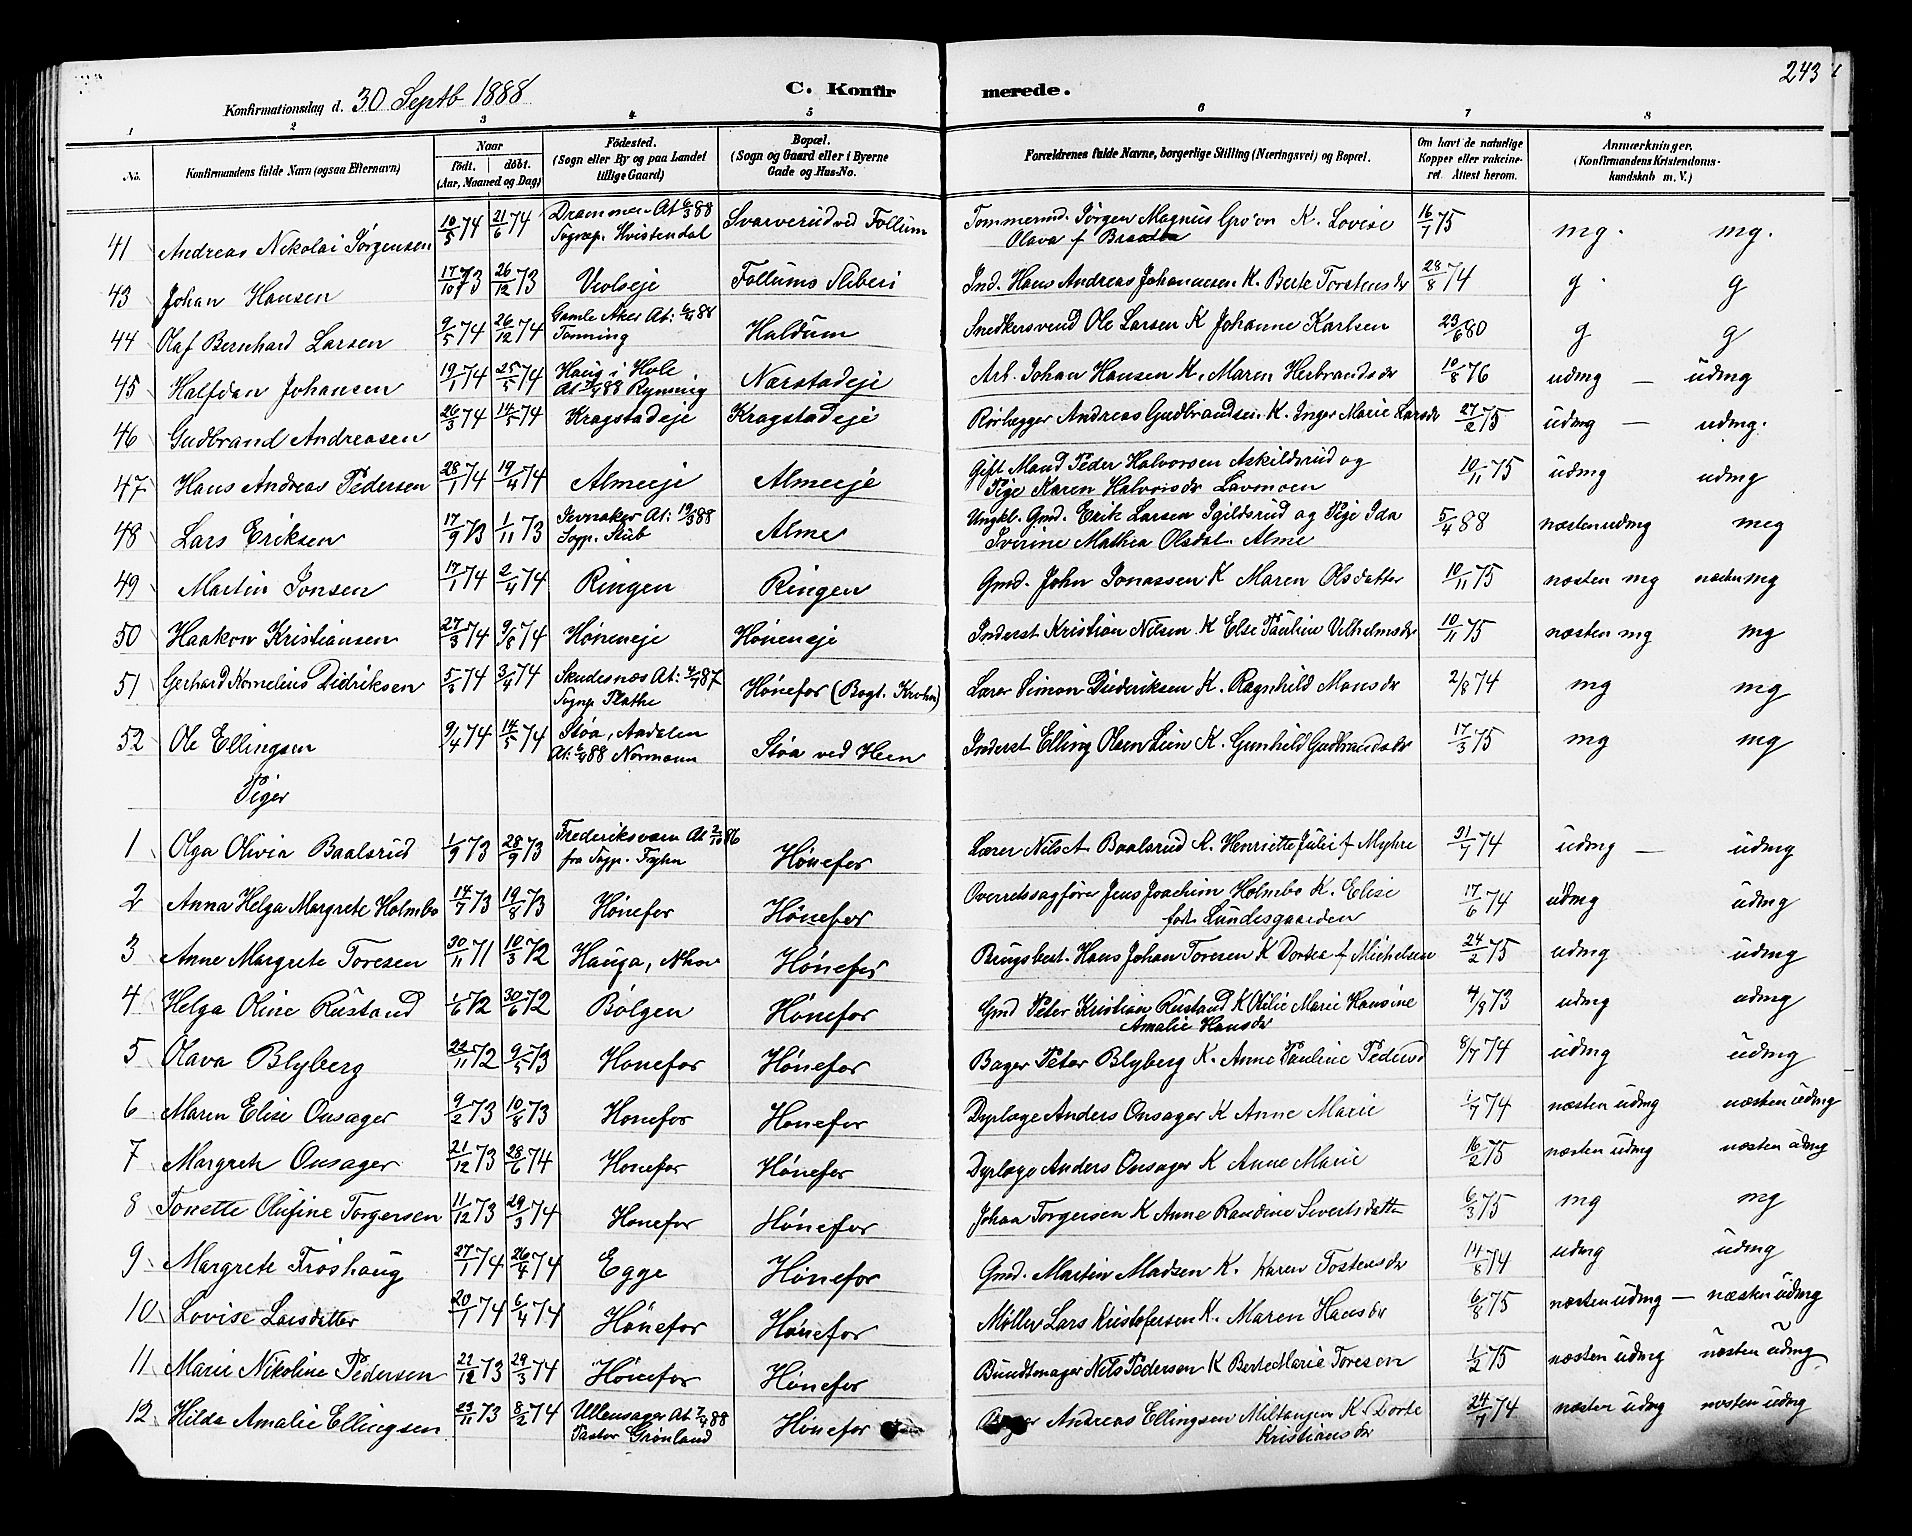 243
Konfirmationsdag d. 30 Septb 1888
C. Konfirmerede.
1 2 3 4 5 6 7 8
No. Konfirmandens fulde Navn (ogsaa Efternavn) Naar født. døbt. (Aar, Maaned og Dag) Fødested. (Sogn eller By og paa Landet tillige Gaard) Bopæl. (Sogn og Gaard eller i Byerne Gade og Hus-No. Forældrenes fulde Navne, borgerlige Stilling (Næringsvei) og Bopæl. Om havt de naturlige Kopper eller vakcineret. Attest herom. Anmærkninger. (Konfirmandens Kristendomskundskab m. V.)
41 Andreas Nikolai Jørgensen 10/5 74 21/6 74 Drammen At 6/3 88 Sognep. Hvistendal Svarverud ved Follum Tømmermd. Jørgen Magnus K. Lovise Olava f 16/7 75 mg. mg.
43 Johan Hansen 17/10 73 26/12 73 Veolseje Follums Sliberi Ind. Hans Andreas Johannesen K. Berte Torstensdr 28/8 74 g. g
44 Olaf Bernhard Larsen 9/5 74 26/12 74 Gamle Aker At: 88 Tønning Haldum Snedkersvend Ole Larsen K Johanne Karlsen 23/6 80 g g
45 Halfdan Johansen 19/1 74 25/5 74 Haug i Hole At 88 Rynning Nærstadeje Arb. Johan Hansen K. Maren Herbrandsdr 10/8 76 udmg — udmg
46 Gudbrand Andreasen 26/3 74 14/5 74 Kragstadeje Kragstadeje Rørlægger Andreas Gudbrandsen K. Inger Marie Larsdr 27/2 75 udmg — udmg.
47 Hans Andreas Pedersen 28/1 74 19/4 74 Almeeje Almeeje Gift Mand Peder Halvorsen Askildsrud og Pige Karen Halvorsdr Lavmoen 10/11 75 udmg udmg
48 Lars Eriksen 17/9 73 1/11 73 Jevnaker At: 88 Sogp. Stub Alme Ungkl. Gmd. Erik Larsen Igildsrud og Pige Ida Sverine Mathea Olsdat. Alme 5/4 88 næsten udmg meg
49 Martin Jonsen 17/1 74 2/4 74 Ringen Ringen Gmd. John Jonassen K Maren Olsdatter 10/11 75 næsten mg næsten mg
50 Haakon Kristiansen 27/3 74 9/8 74 Høneneje Høneneje Inderst Kristian Nilsen K Else Pauline Vilhelmsdr 10/11 75 næsten mg mg
51 Gerhard Kornelius Didriksen 5/3 74 3/4 74 Skudesnæs At: 87 Sognp. Plathe Hønefos (Bogt. Krohn) Lærer Simon Diederiksen K. Ragnhild Monsdr 2/8 74 mg mg
52 Ole Ellingsen 9/4 74 14/5 74 Støa, Aadalen At: 88 Normann Støa ved Heen Inderst Elling Olsen Lien K. Gunhild Gudbrandsdr 17/3 75 mg mg
Piger
1 Olga Olivia Baalsrud 1/9 73 28/9 73 Frederiksværn At 2/10 86 fra Sogp. Hønefos Lærer Nils A. Baalsrud K. Henriette Julie f Myhre 31/7 74 udmg — udmg
2 Anna Helga Margrete Holmbo 14/7 73 19/8 73 Hønefos Hønefos Overretssagfører Jens Joachim Holmbo K. Elise fød. Lundesgaarden 17/6 74 udmg udmg
3 Anne Margrete Toresen 30/11 71 10/3 72 Hauga, Nhov Hønefos Brugsbest. Hans Johan Toresen K Dortea f Michelsen 24/2 75 udmg udmg
4 Helga Oline Rustand 1/6 72 30/6 72 Bølgen Hønefos Gmd Peter Kristian Rustand K Otilie Marie Hansine Amalie Hansdr 4/9 73 udmg udmg
5 Olava Blyberg 22/11 72 9/5 73 Honefos Hønefos Bager Peter Blyberg K. Anne Pauline Pedersd 8/7 74 udmg udmg
6 Maren Elise Onsager 9/2 73 10/8 73 Honefos Hønefos Dyrlæge Anders Onsager K Anne Marie 1/7 74 næsten udmg næsten udmg
7 Margreth Onsager 21/12 73 28/6 74 Honefos Hønefos Dyrlæge Anders Onsager K Anne Marie 16/2 75 næsten udmg næsten udmg
8 Tonette Olufine Torgersen 11/12 73 29/3 74 Honefos Hønefos Johan Torgersen K Anne Randine Sivertsdatter 6/3 75 mg mg
9 Margrete Frøshaug 27/1 74 26/4 74 Egge Hønefos Gmd. Martin Madsen K. Karen Tostensdr 14/8 74 udmg udmg
10 Lovise Larsdatter 20/1 74 6/4 74 Hønefos Hønefos Møller Lars Kristofersen K. Maren Hansdr 6/8 75 næsten udmg — næsten udmg
11 Marie Nikoline Pedersen 22/12 73 29/3 74 Hønefos Hønefos Bundtmager Nils Pedersen K Berte Marie Toresen 1/2 75 næsten udmg næsten udmg
12 Hilda Amalie Ellingsen 23/11 73 8/2 74 Ullensager At 7/4 88 Pastor Grønland Hønefos Andreas Ellingsen Miltangen K. Dorte Kristiansdr 24/7 74 næsten udmg næsten udmg